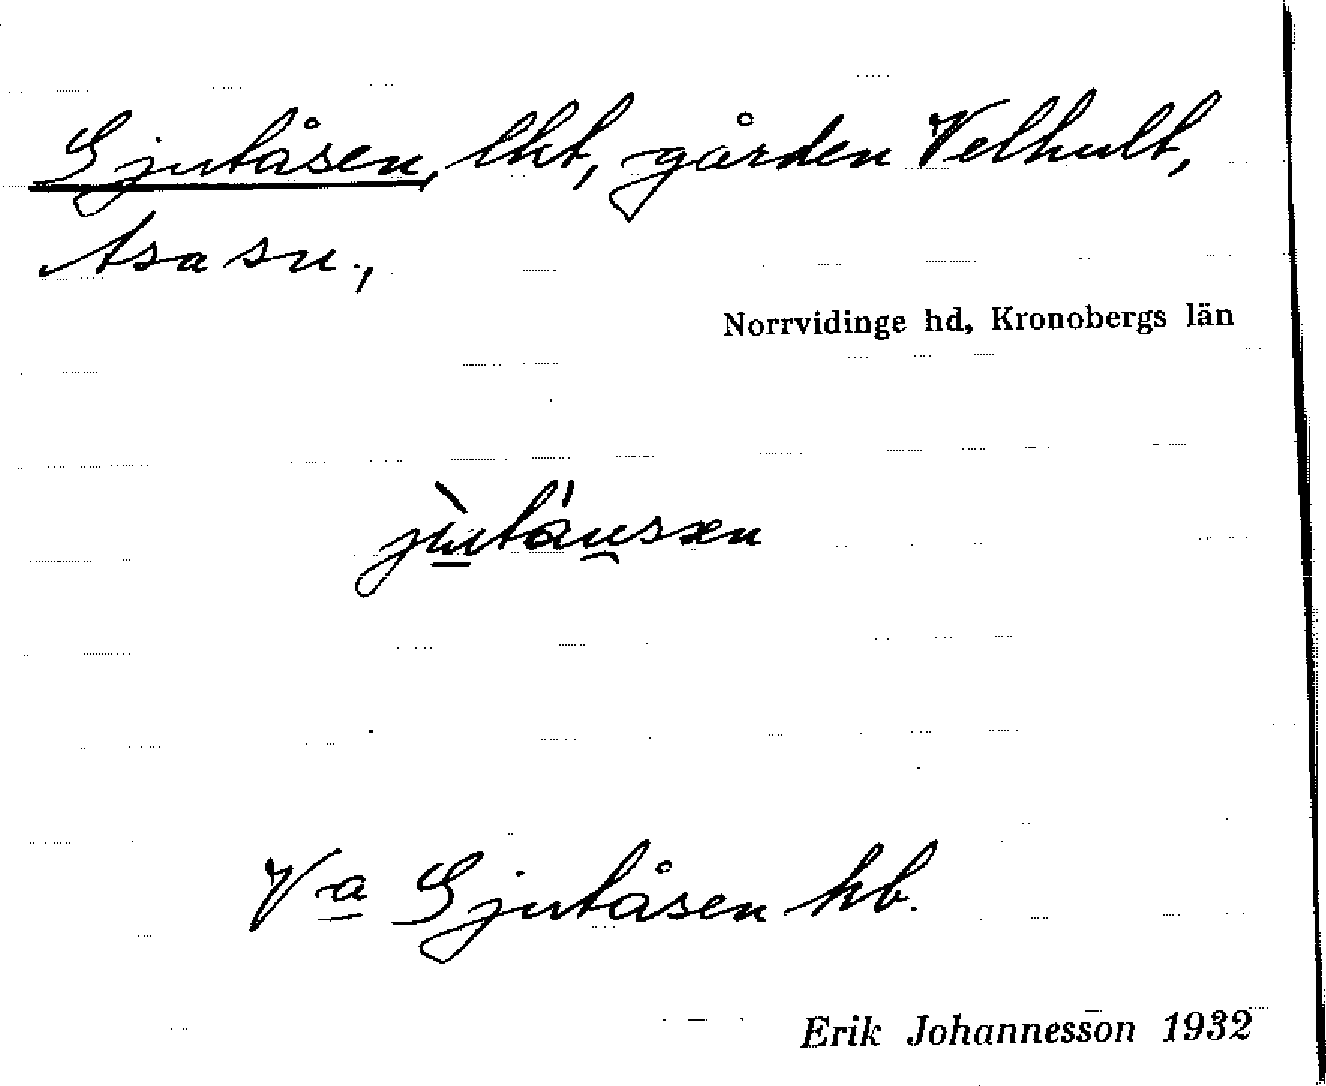 Gjutåsen, lht, gården Velhult,
Asa sn.,
Norrvidinge hd, Kronobergs län
Va Gjutåsen hb.
Erik Johannesson 1932